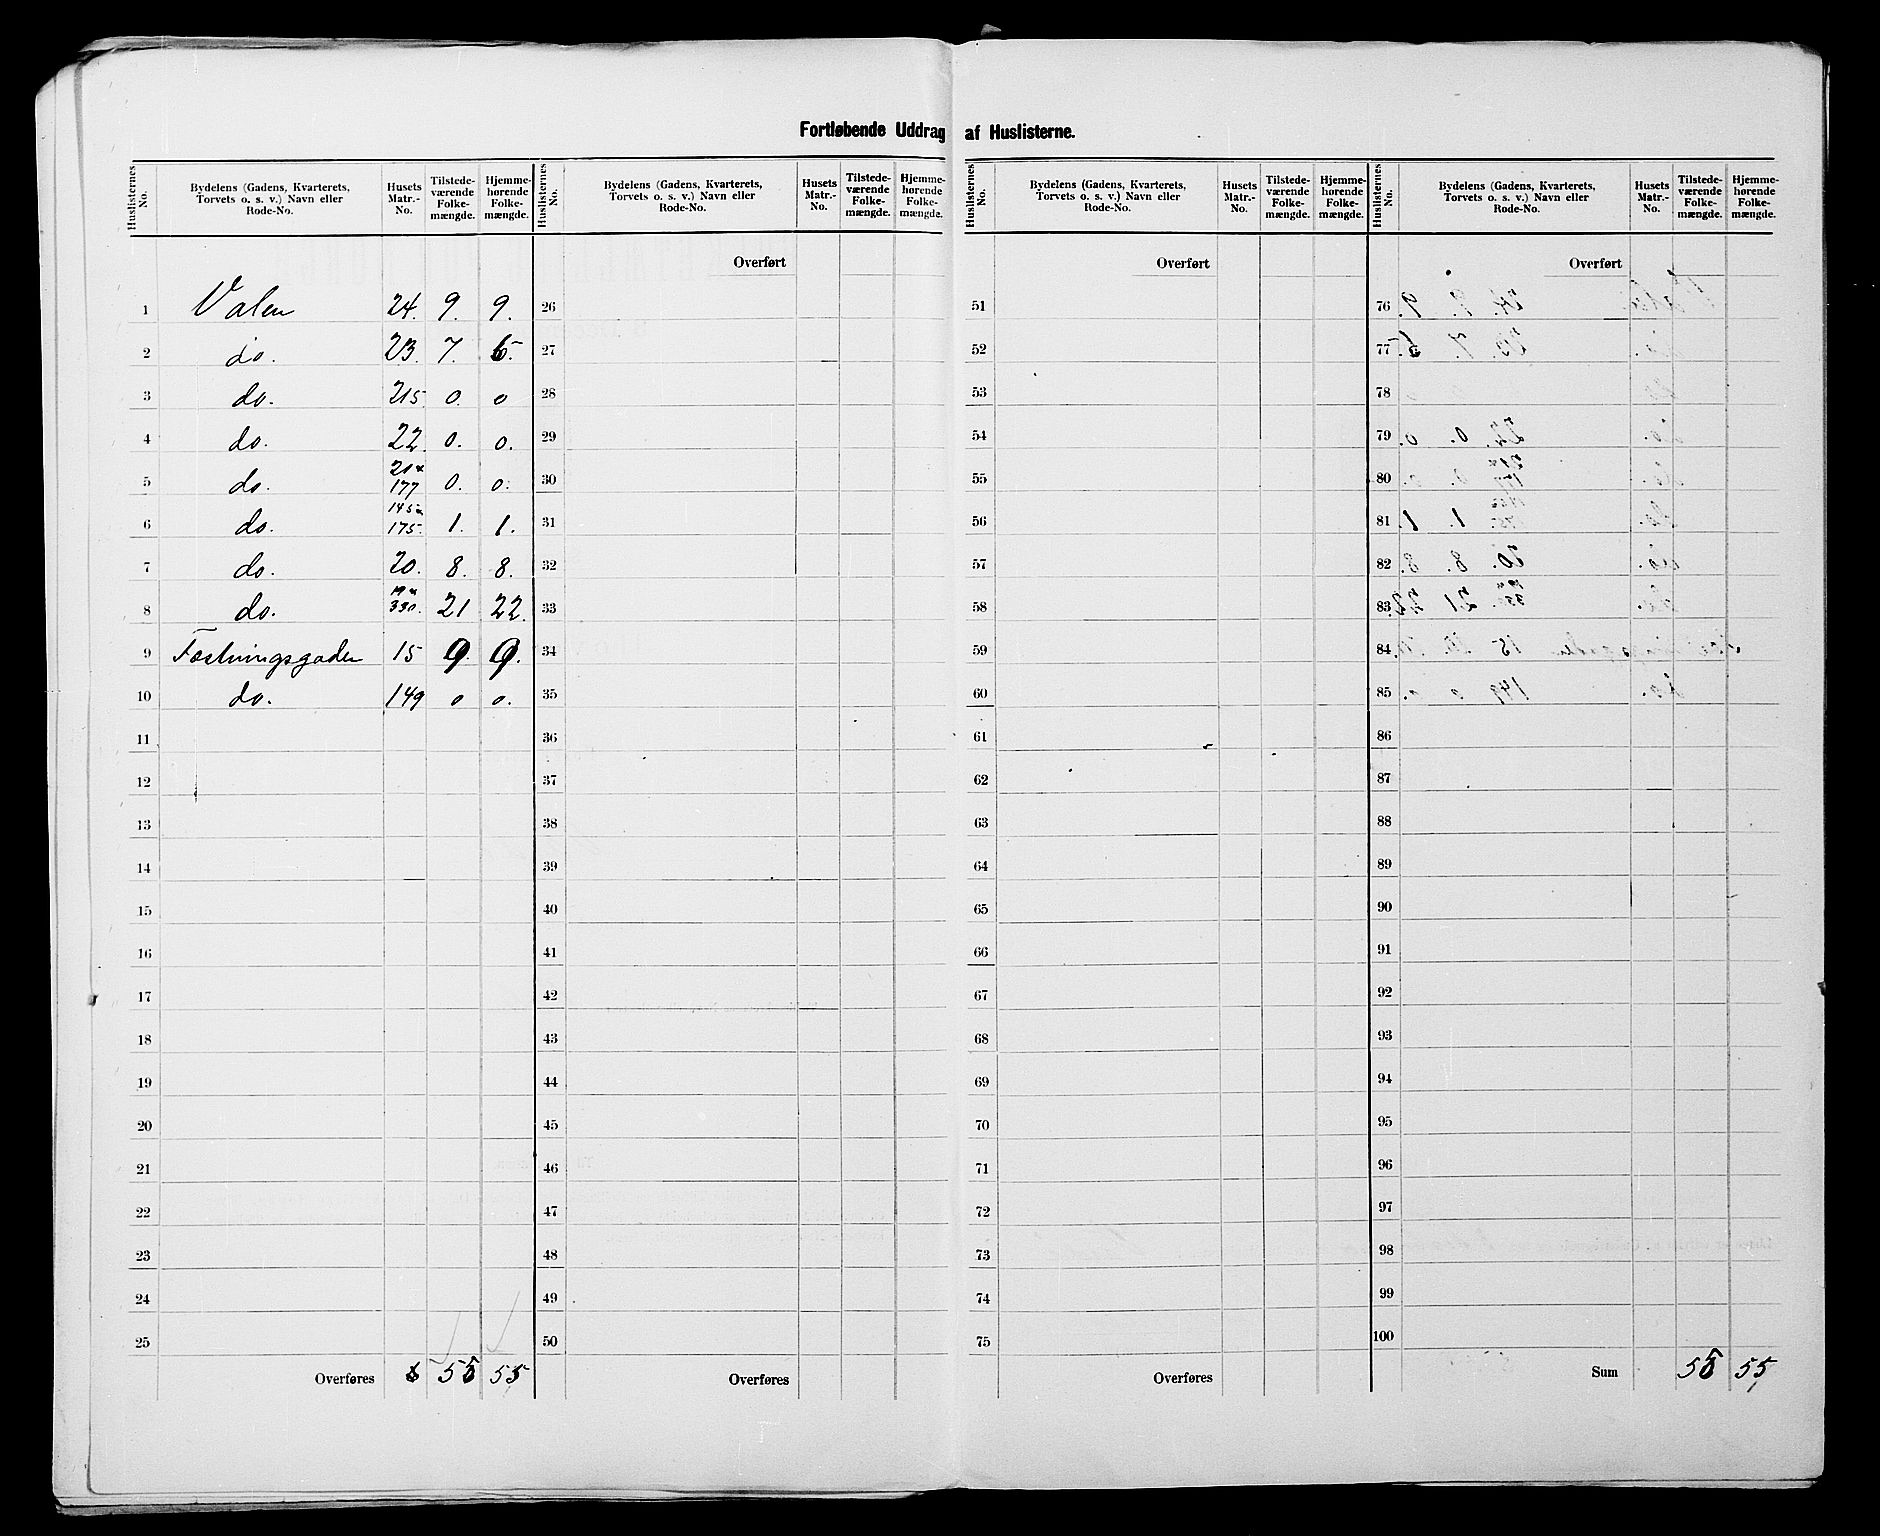 Fortløbende Uddrag af Huslisterne.
Huslisternes No. Bydelens (Gadens, Kvarterets, Torvets o. s. v.) Navn eller Rode-No. Husets Matr.-No. Tilstedeværende Folkemængde. Hjemmehørende Folkemængde.
1 Valen 24. 9. 9.
2 do. 23. 7. 6.
3 do. 215. 0. 0
4 do. 22. 0. 0.
5 do. 21a 177 0. 0.
6 do. 145a 175. 1. 1.
7 do. 20. 8. 8.
8 do. 19a 330. 21 22.
9 Fæstningsgaden 15 9. 9.
10 do. 149 0 0.
11
12
13
14
15
16
17
18
19
20
21
22
23
24
25
Overføres 6 55 55
Huslisternes No. Bydelens (Gadens, Kvarterets, Torvets o. s. v.) Navn eller Rode-No. Husets Matr.-No. Tilstedeværende Folkemængde. Hjemmehørende Folkemængde.
Overført
26
27
28
29
30
31
32
33
34
35
36
37
38
39
40
41
42
43
44
45
46
47
48
49
50
Overføres
Huslisternes No. Bydelens (Gadens, Kvarterets, Torvets o. s. v.) Navn eller Rode-No. Husets Matr.-No. Tilstedeværende Folkemængde. Hjemmehørende Folkemængde.
Overført
51
52
53
54
55
56
57
58
59
60
61
62
63
64
65
66
67
68
69
70
71
72
73
74
75
Overføres
Huslisternes No. Bydelens (Gadens, Kvarterets, Torvets o. s. v.) Navn eller Rode-No. Husets Matr.-No. Tilstedeværende Folkemængde. Hjemmehørende Folkemængde.
Overført
76
77
78
79
80
81
82
83
84
85
86
87
88
89
90
91
92
93
94
95
96
97
98
99
100
Sum 55 55